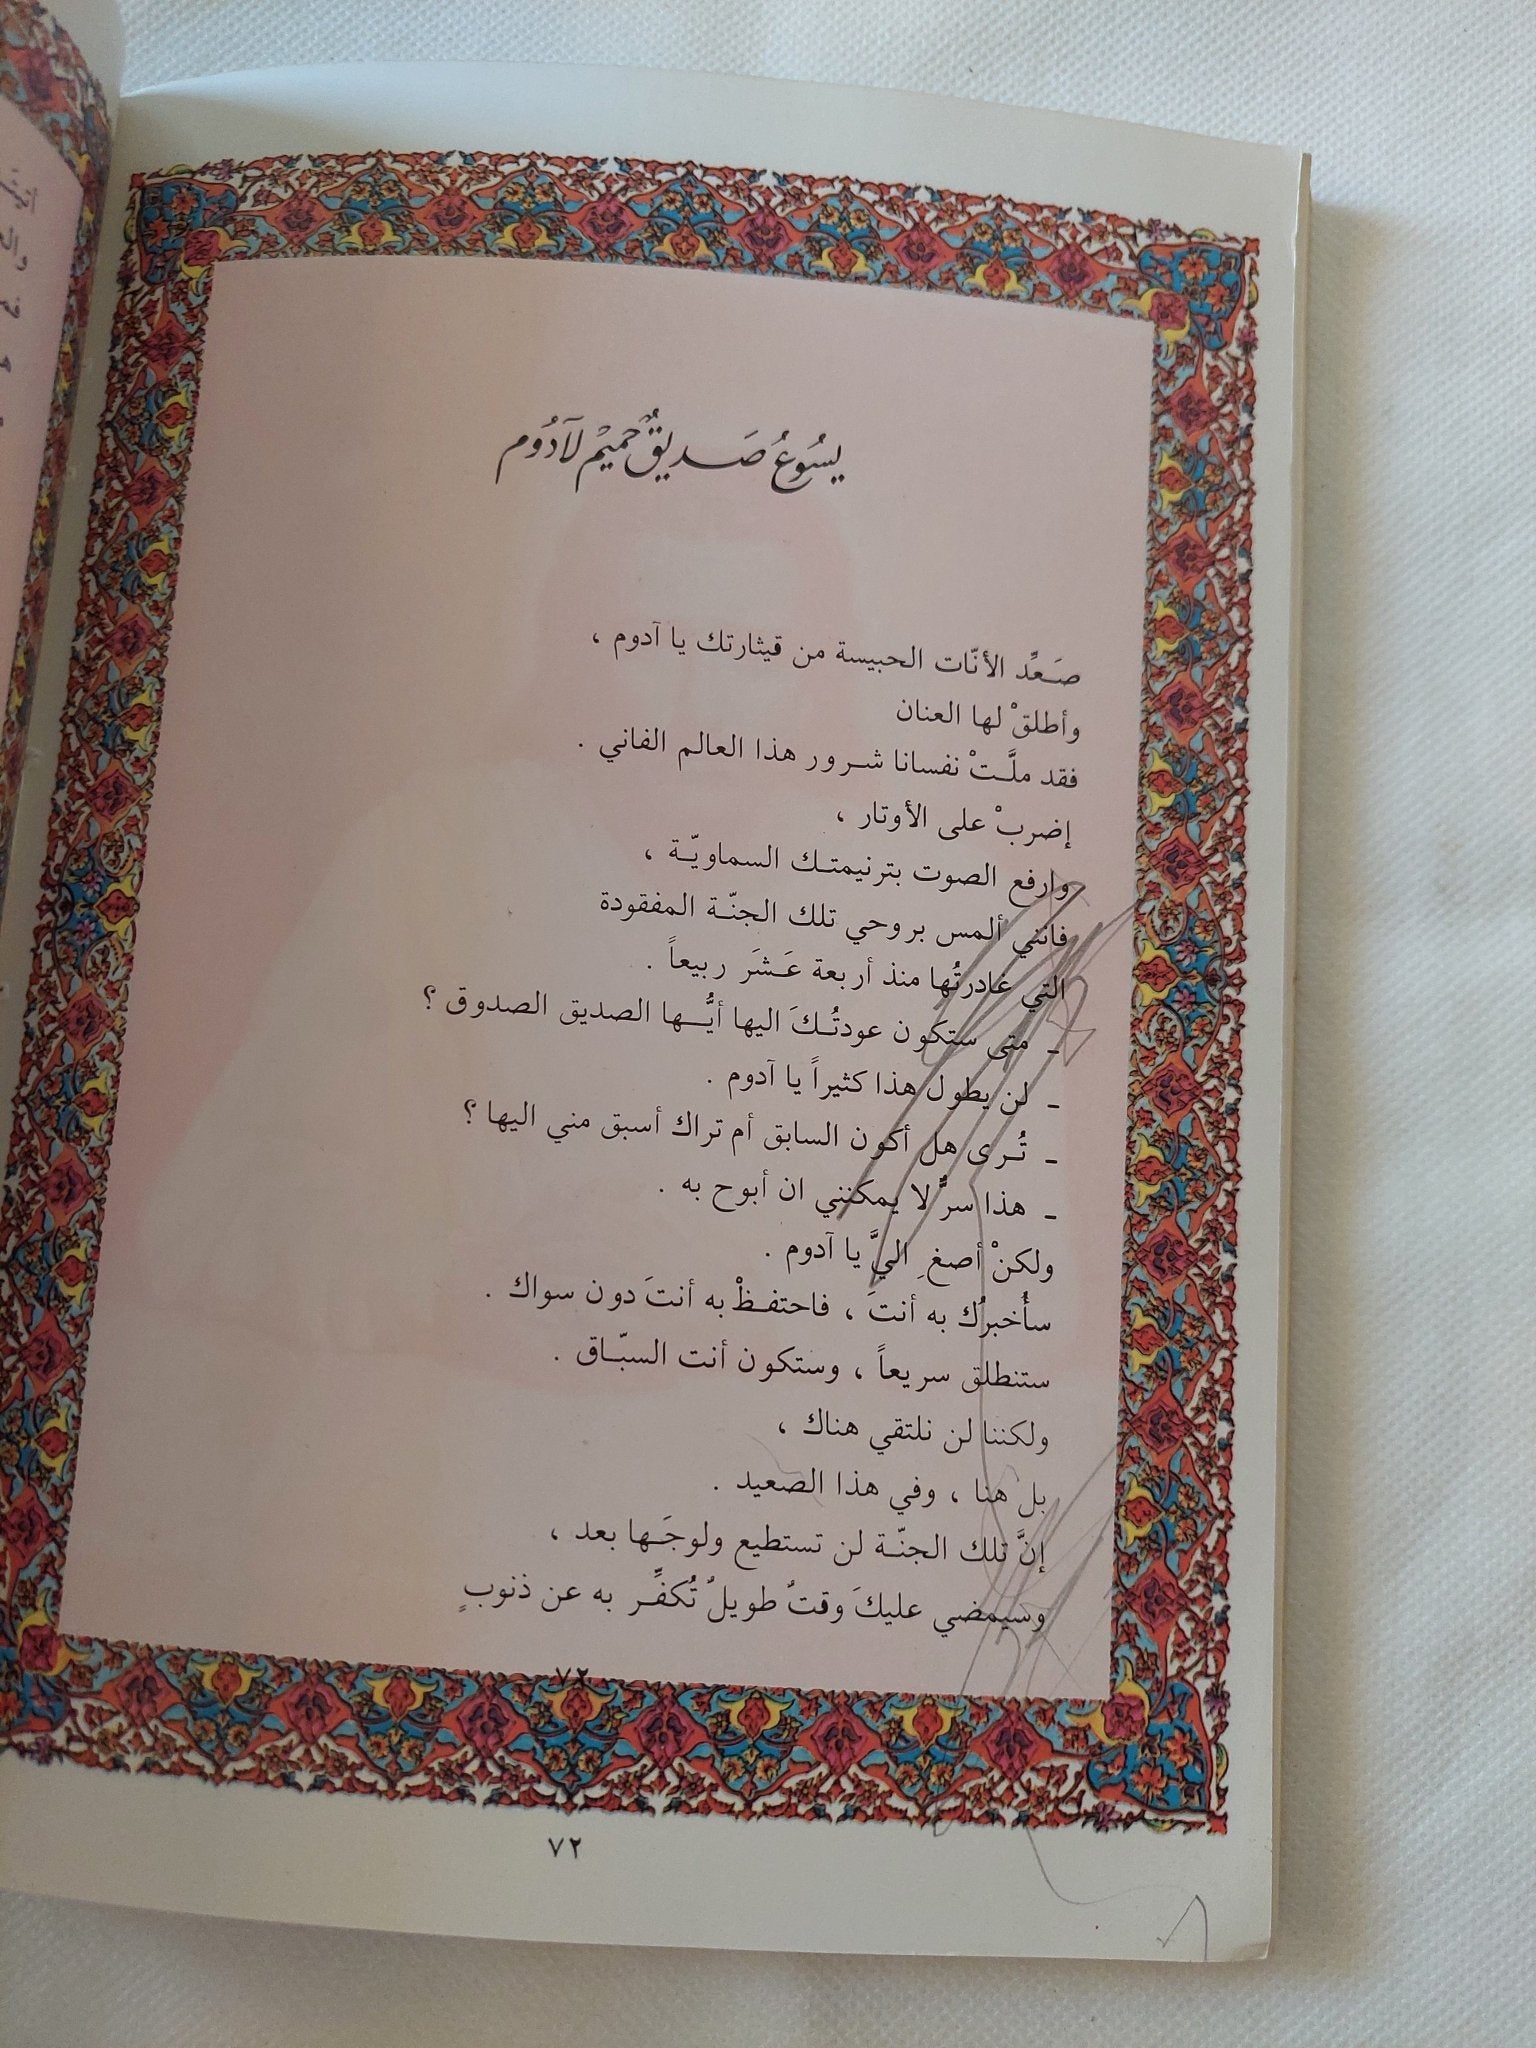 يسُوعُ صَديقٌ حَميْم لآدُوم
صَعِّد الأنّات الحبيسة من قيثارتك يا آدوم ،
وأطلقْ لها العنان
فقد ملَّتْ نفسانا شرور هذا العالم الفاني .
إضربْ على الأوتار ،
وارفع الصوت بترنيمتك السماويّة ،
فانني ألمس بروحي تلك الجنّة المفقودة
التي غادرتُها منذ أربعة عَشَر ربيعاً .
- متى ستكون عودتُكَ اليها أيُّها الصديق الصدوق ؟
- لن يطول هذا كثيراً يا آدوم .
- تُرى هل أكون السابق أم تراك أسبق مني اليها ؟
- هذا سرٌّ لا يمكنني ان أبوح به .
ولكنْ أصغِ اليَّ يا آدوم .
سأُخبرُك به أنتَ ، فاحتفظْ به أنتَ دون سواك .
ستنطلق سريعاً ، وستكون أنت السبّاق .
ولكننا لن نلتقي هناك ،
بل هنا ، وفي هذا الصعيد .
إنَّ تلك الجنّة لن تستطيع ولوجَها بعد ،
وسيمضي عليكَ وقتٌ طويلٌ تُكفِّر به عن ذنوبٍ
٧٢
٧٢